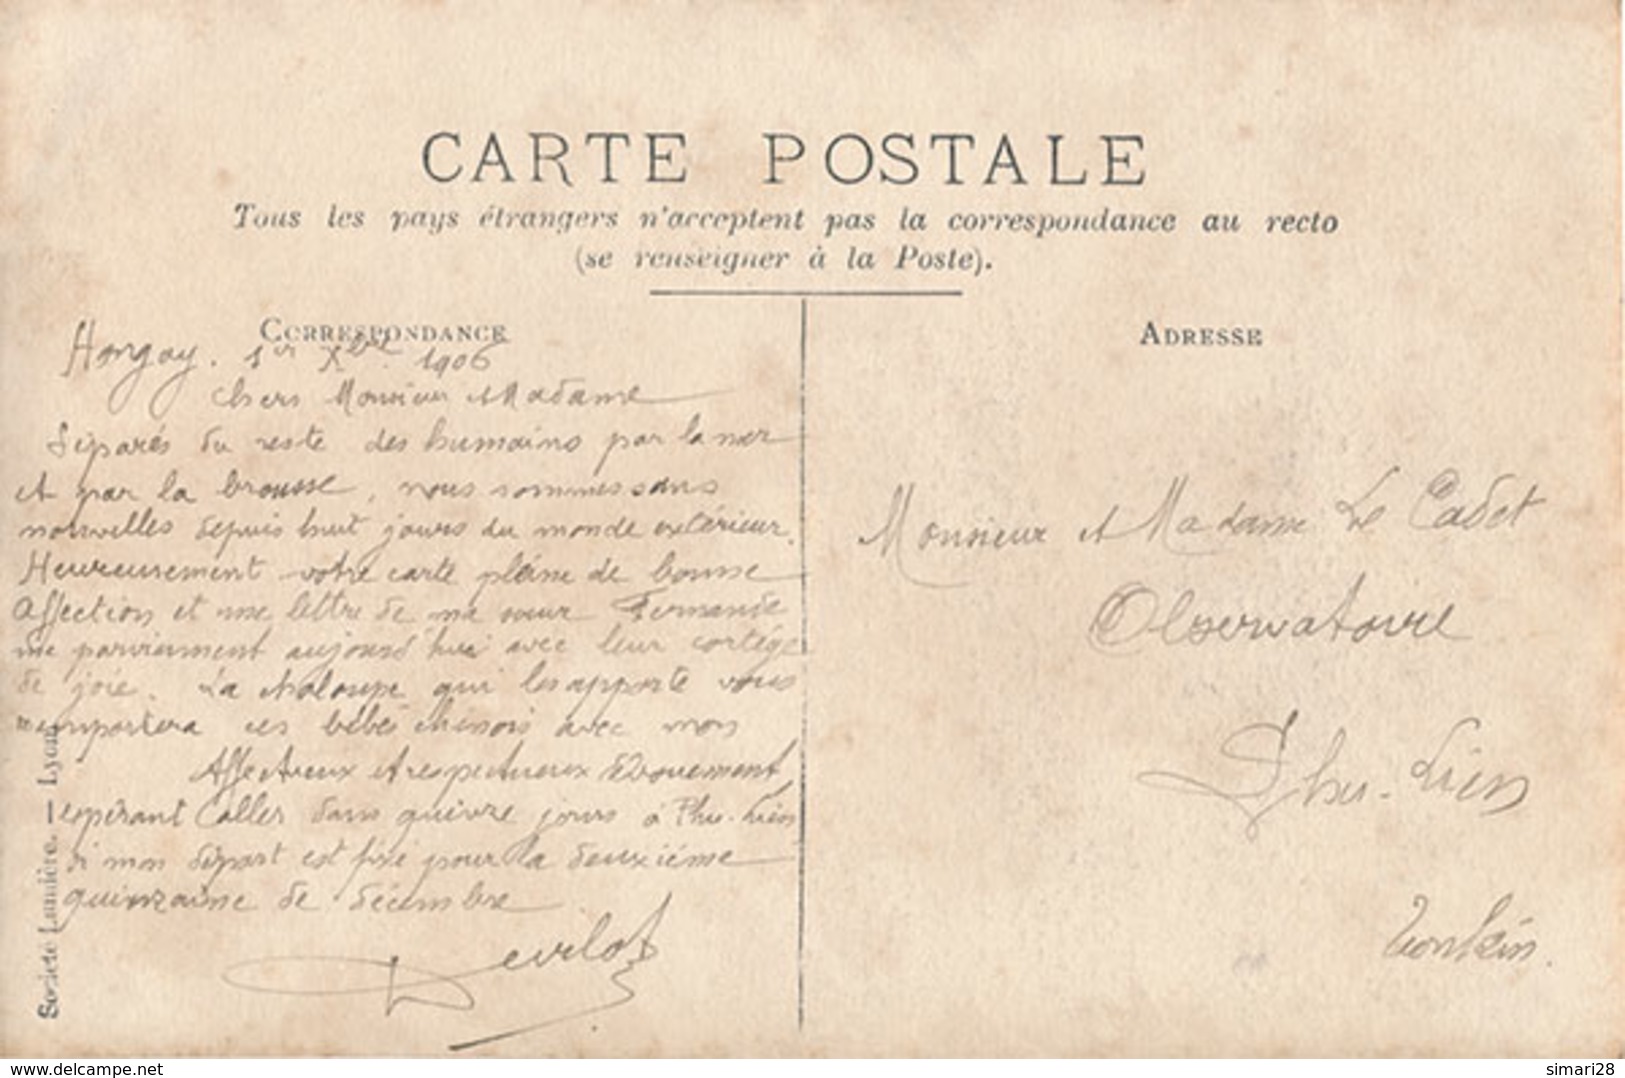 CARTE POSTALE
Tous les pays étrangers n'acceptent pas la correspondance au recto
(se renseigner à la Poste).
CORRESPONDANCE
Hongay. 1er Xbre 1906
Chers Monsieur et Madame
Séparés du reste des humains par la mer
et par la brousse, nous sommes sans
nouvelles depuis huit jours du monde extérieur.
Heureusement votre carte pleine de bonne
affection et une lettre de ma sœur Fernande
me parviennent aujourd'hui avec leur cortège
de joie. La chaloupe qui les apporte vous
remportera ces bébés chinois avec mon
Affectueux et respectueux dévouement
espérant aller dans quinze jours à Phu-Lien
si mon départ est fixé pour la deuxième
quinzaine de décembre
Devilot
Société Lumière. — Lyon
ADRESSE
Monsieur et Madame Le Cadet
Observatoire
Phu-Lien
Tonkin.
delcampe.net
simari28